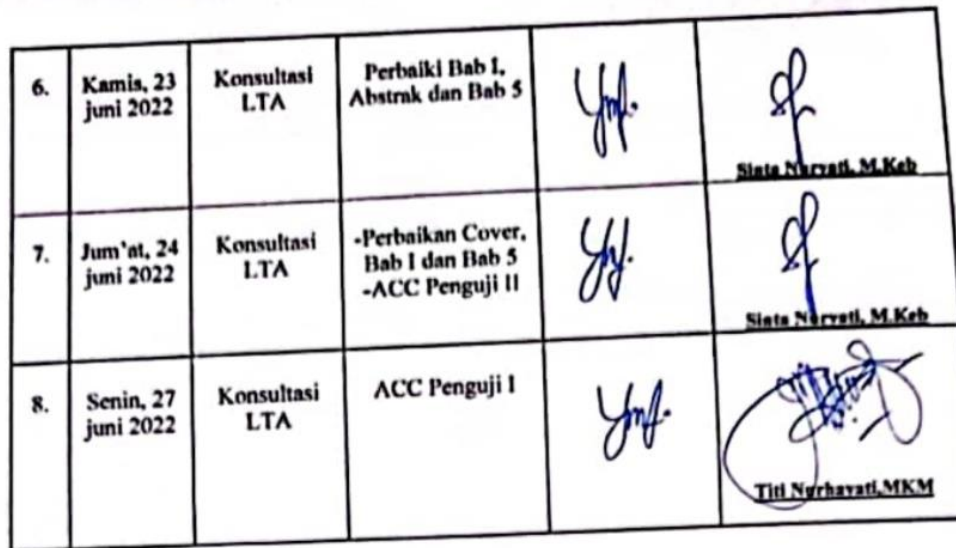 6.
Kamis, 23
juni 2022
Konsultasi
LTA
Perbaiki Bab I,
Abstrak dan Bab 5
Sinta Nurvati, M.Keb
7.
Jum'at, 24
juni 2022
Konsultasi
LTA
-Perbaikan Cover,
Bab I dan Bab 5
-ACC Penguji II
Sinta Nurvati, M.Keb
8.
Senin, 27
juni 2022
Konsultasi
LTA
ACC Penguji I
Titi Nurhayati,MKM